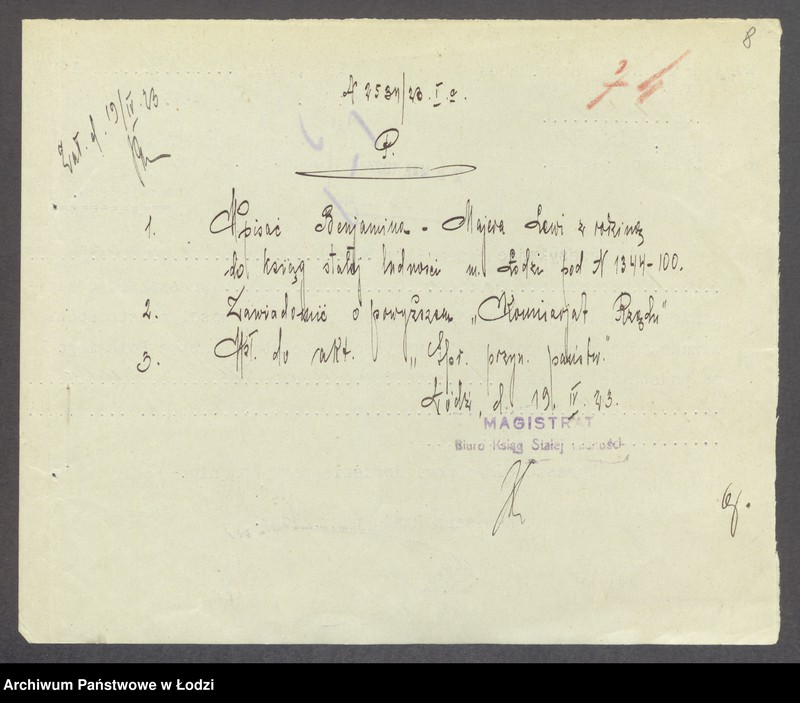 8
N 2534/23. I a.
74
Zał. d. 19/IV 23
P.
1. Wpisać Benjamina - Majera Lewi z rodziną
do ksiąg stałej ludności m. Łodzi pod N 1344-100.
2. Zawiadomić o powyższem „Komisarjat Rządu"
3. Wł. do akt. „Spr. przyn. państw."
Łódź, d. 19. IV. 23.
MAGISTRAT
Biuro Ksiąg Stałej Ludności
Archiwum Państwowe w Łodzi